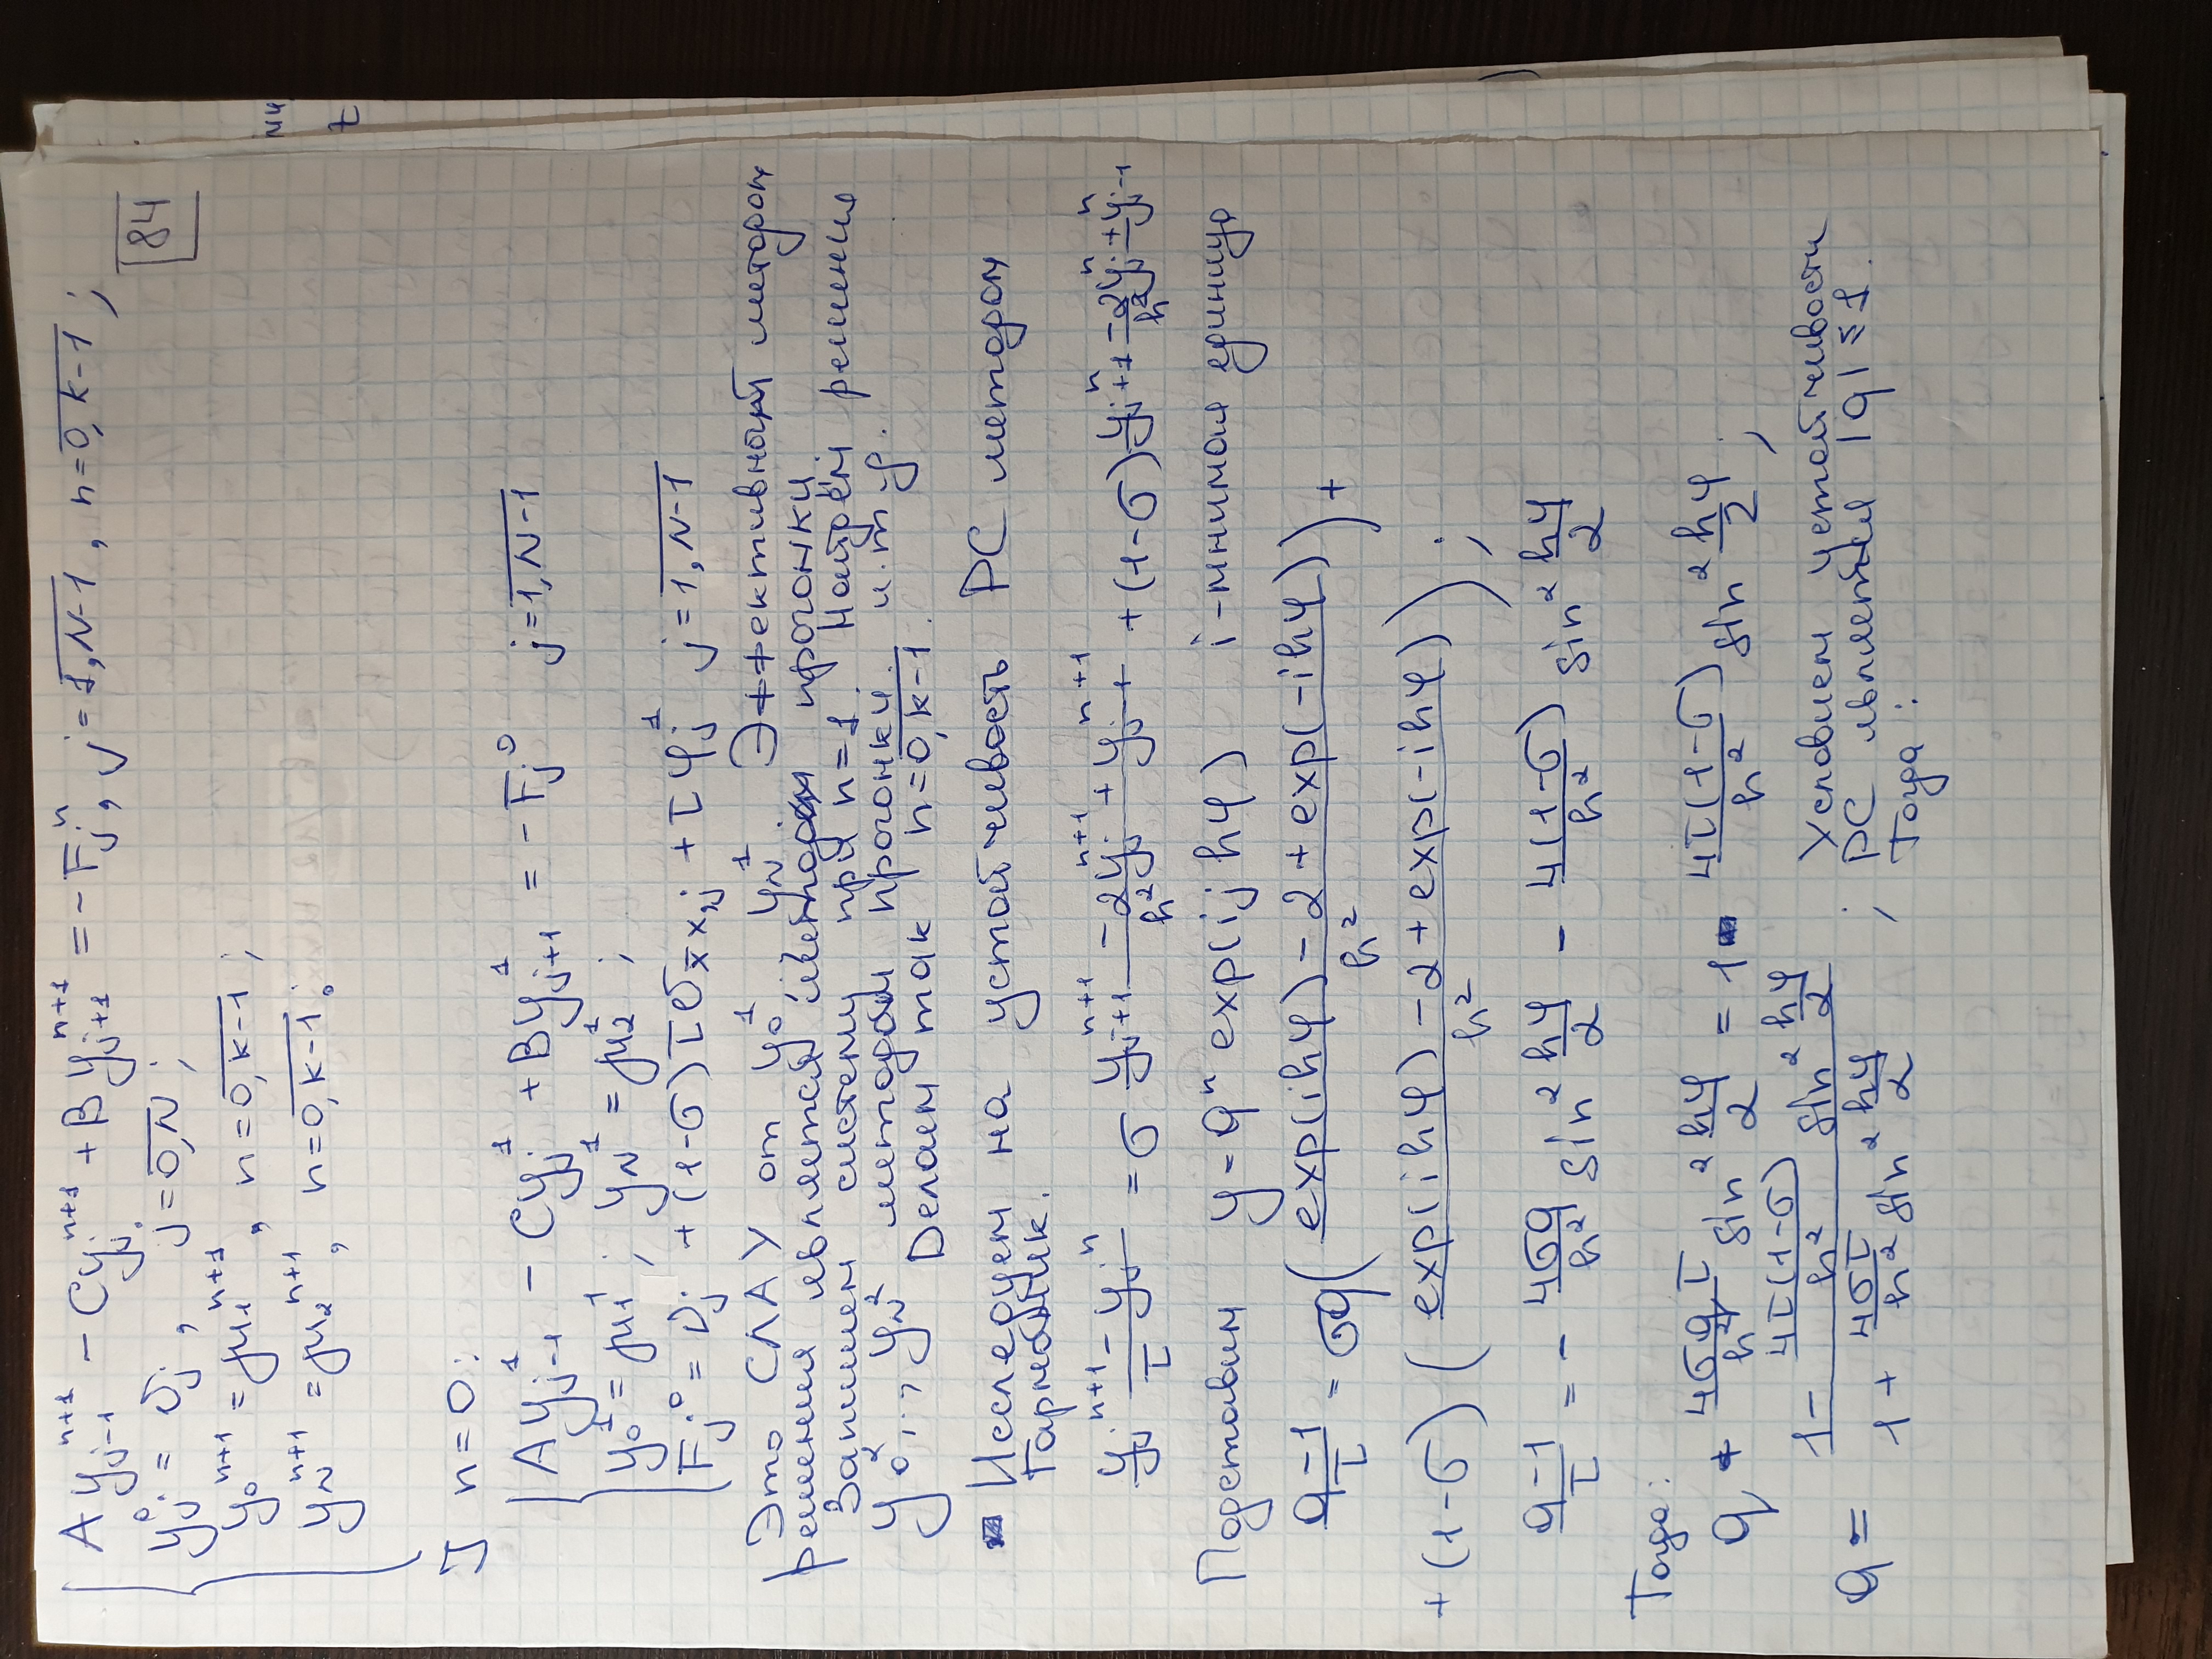 84
A y_{j-1}^{n+1} - C y_j^{n+1} + B y_{j+1}^{n+1} = -F_j^n, j=\overline{1,N-1}, n=\overline{0,k-1};
y_j^0 = υ_j, j=\overline{0,N};
y_0^{n+1} = μ_1^{n+1}, n=\overline{0,k-1};
y_N^{n+1} = μ_2^{n+1}, n=\overline{0,k-1};
n=0:
A y_{j-1}^1 - C y_j^1 + B y_{j+1}^1 = -F_j^0 j=\overline{1,N-1}
y_0^1 = μ_1^1; y_N^1 = μ_2^1;
F_j^0 = υ_j + (1-σ) τ υ_{\overline{x}x,j} + τ φ_j^1 j=\overline{1,N-1}
Это СЛАУ от y_0^1 ... y_N^1. Эффективной методом
решения является прогонки
Запишем систему при n=1. Найдём решения
y_0^2, ..., y_N^2 методом прогонки и. т. д.
Делаем так n=\overline{0,k-1}.
Исследуем на устойчивость РС методом
Гармоник.
\frac{y_j^{n+1} - y_j^n}{τ} = σ \frac{y_{j+1}^{n+1} - 2y_j^{n+1} + y_{j-1}^{n+1}}{h^2} + (1-σ) \frac{y_{j+1}^n - 2y_j^n + y_{j-1}^n}{h^2}
Подставим y = q^n exp(ijhφ) i-мнимая единица
\frac{q-1}{τ} = σq(\frac{exp(ihφ) - 2 + exp(-ihφ)}{h^2}) +
+ (1-σ)(\frac{exp(ihφ) - 2 + exp(-ihφ)}{h^2});
\frac{q-1}{τ} = - \frac{4σq}{h^2} sin^2 \frac{hφ}{2} - \frac{4(1-σ)}{h^2} sin^2 \frac{hφ}{2}
Тогда:
q + \frac{4σqτ}{h^2} sin^2 \frac{hφ}{2} = 1 - \frac{4τ(1-σ)}{h^2} sin^2 \frac{hφ}{2};
q = \frac{1 - \frac{4τ(1-σ)}{h^2} sin^2 \frac{hφ}{2}}{1 + \frac{4στ}{h^2} sin^2 \frac{hφ}{2}};
Условием устойчивости
РС является |q| ≤ 1.
Тогда: